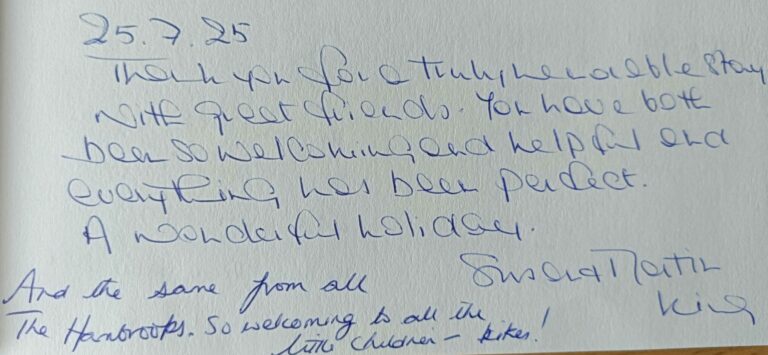 25.7.25
Thank you for a truly memorable stay
with great friends. You have both
been so welcoming and helpful and
everything has been perfect.
A wonderful holiday.
Susan & Martin
King
And the same from all
The Hambrooks. So welcoming to all the
little children - bikes!